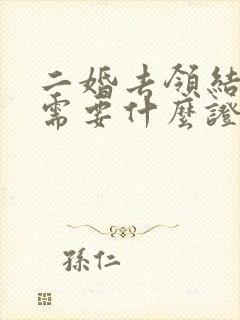 二婚去領結
需要什麼證
孫仁